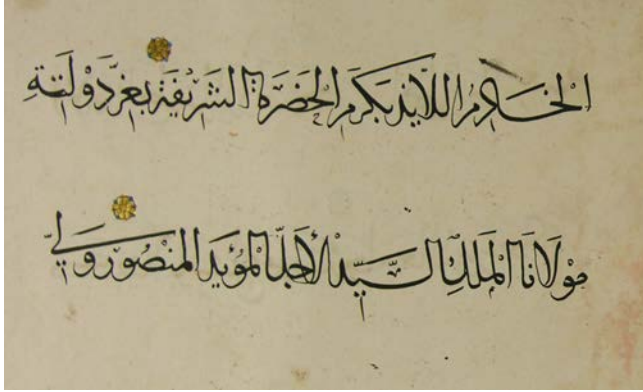 الخَادِمُ اللَّائِذ بكَرَمِ الحَضْرَةِ الشَريفَةِ بعِزّ دَوْلَتِهِ
مَوْلَانَا المَلكِ السَيّدِ الأَجَلّ المؤَيَّد المَنْصُورِ وَليّ